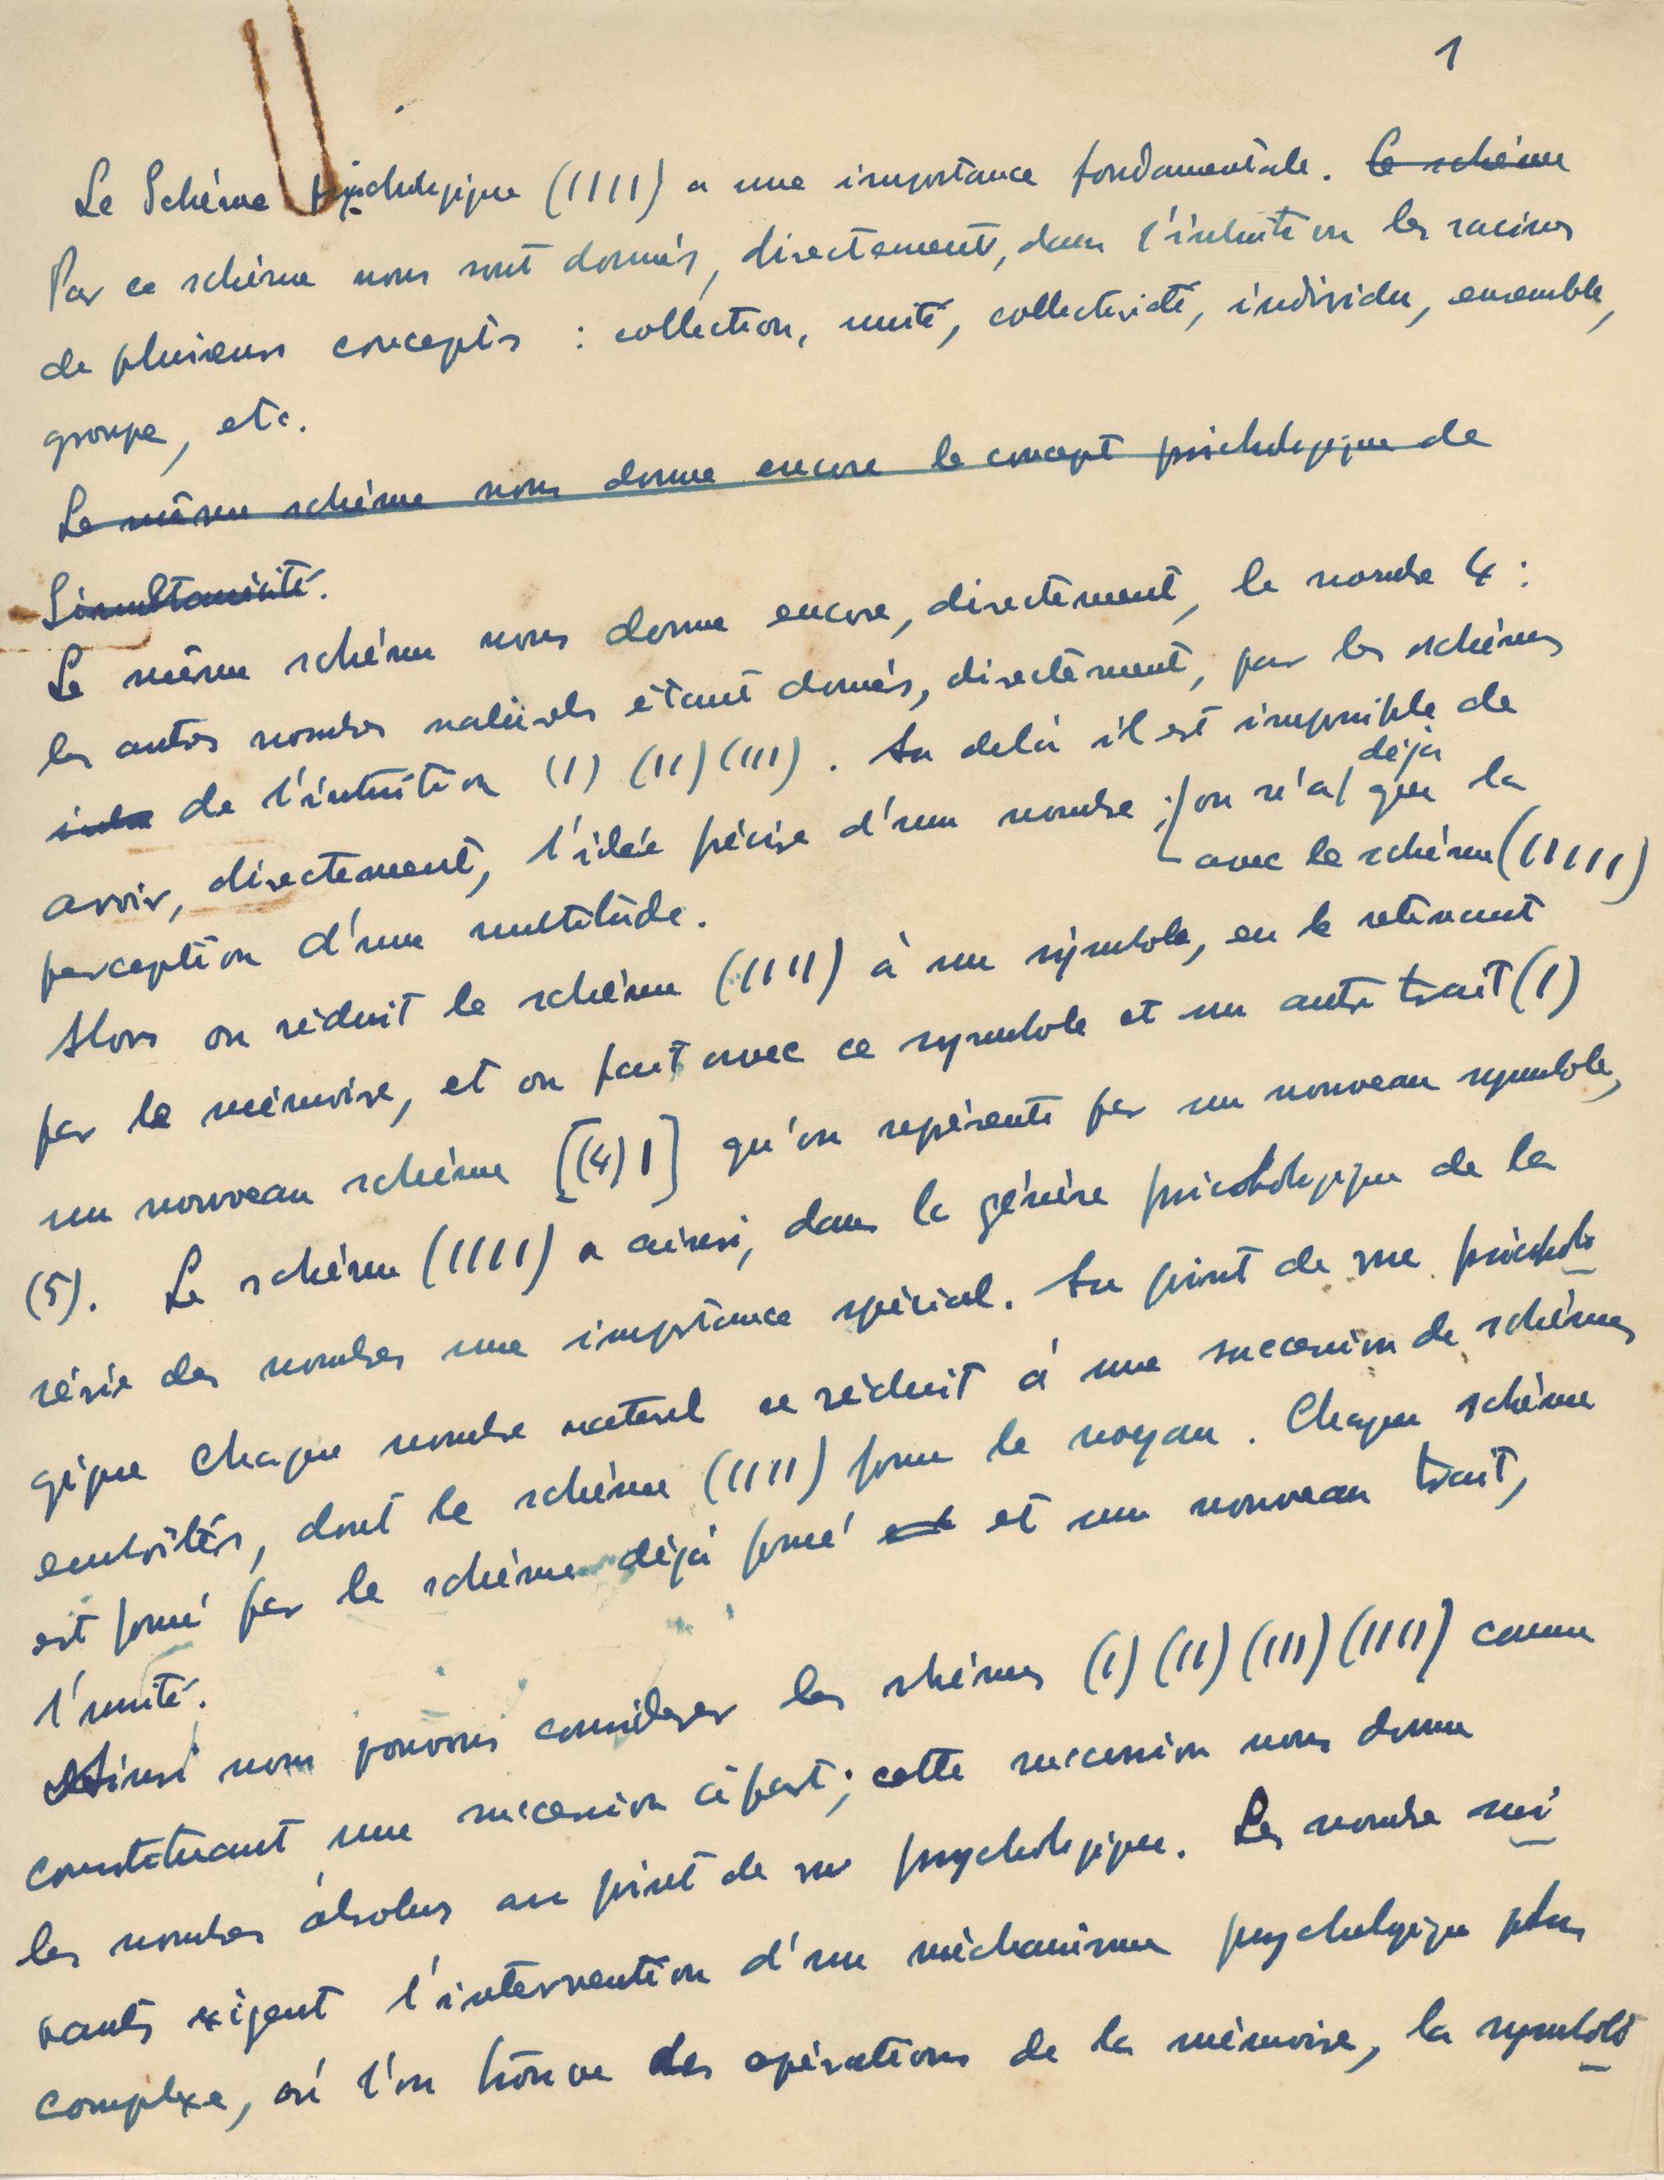 1
Le Schéme psichologique (IIII) a une importance fondamentale. Ce schéme
Par ce schéme nous sont donnés, directement, dans l'intuition les racines
de plusieurs concepts : collection, unité, collectivité, individu, ensemble,
groupe, etc.
Le même schéme nous donne encore le concept psichologique de
Simultanéité.
Le même schéme nous donne encore, directement, le nombre 4 :
les autres nombres naturels étant donnés, directement, par les schémes
intu de l'intuition (I) (II) (III). Au delà il est impossible de
avoir, directement, l'idée précise d'un nombre ; on n'a déjà que la
avec le schéme (IIIII)
perception d'une multitude.
Alors on réduit le schéme (IIII) à un symbole, en le retenant
par la mémoire, et on fait avec ce symbole et un autre trait (I)
un nouveau schéme [(4) I] qu'on représente par un nouveau symbole,
(5). Le schéme (IIII) a ainsi, dans la génèse psichologique de la
série des nombres une importance spécial. Au point de vue psicholo
gique chaque nombre naturel se réduit à une succession de schémes
emboîtés, dont le schéme (IIII) forme le noyau. Chaque schéme
est formé par le schéme déjà formé et et un nouveau trait,
l'unité.
Ainsi nous pouvons considerer les shémes (I) (II) (III) (IIII) comme
constituant une succession à part ; cette succession nous donne
les nombres absolus au point de vue psychologique. Les nombre sui
vants exigent l'intervention d'un méchanisme psychologique plus
complexe, où l'on trouve des opérations de la mémoire, la symboli